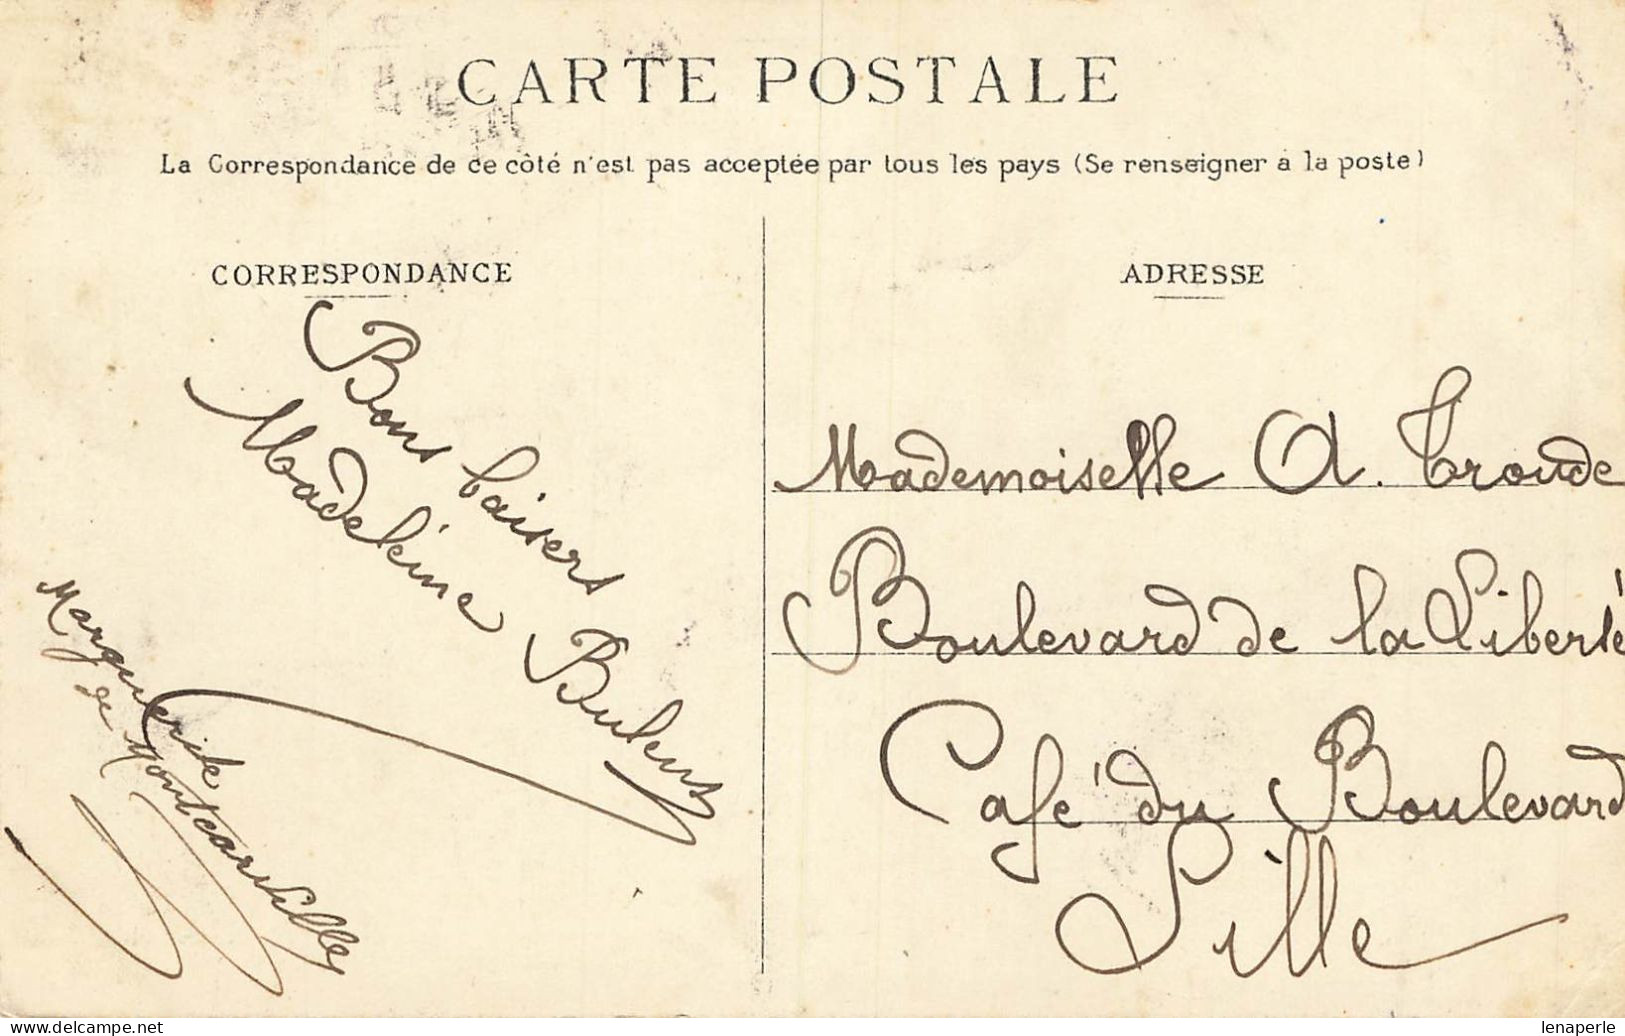 CARTE POSTALE
La Correspondance de ce côté n'est pas acceptée par tous les pays (Se renseigner à la poste)
CORRESPONDANCE
Bons baisers
Madeleine Bulens
Marguerite
de Montcarville
ADRESSE
Mademoiselle A. Tronde
Boulevard de la Liberté
Café du Boulevard
Lille
delcampe.net
lenaperle